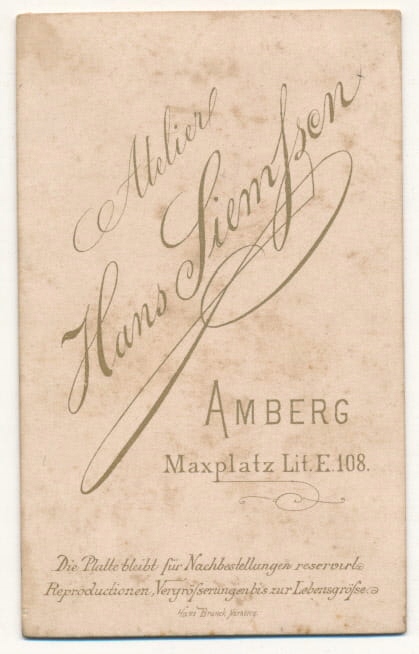 Atelier
Hans Siemſsen
AMBERG
Maxplatz Lit. E. 108.
Die Platte bleibt für Nachbestellungen reservirt
Reproductionen, Vergröſserungen bis zur Lebensgröſse
Hans